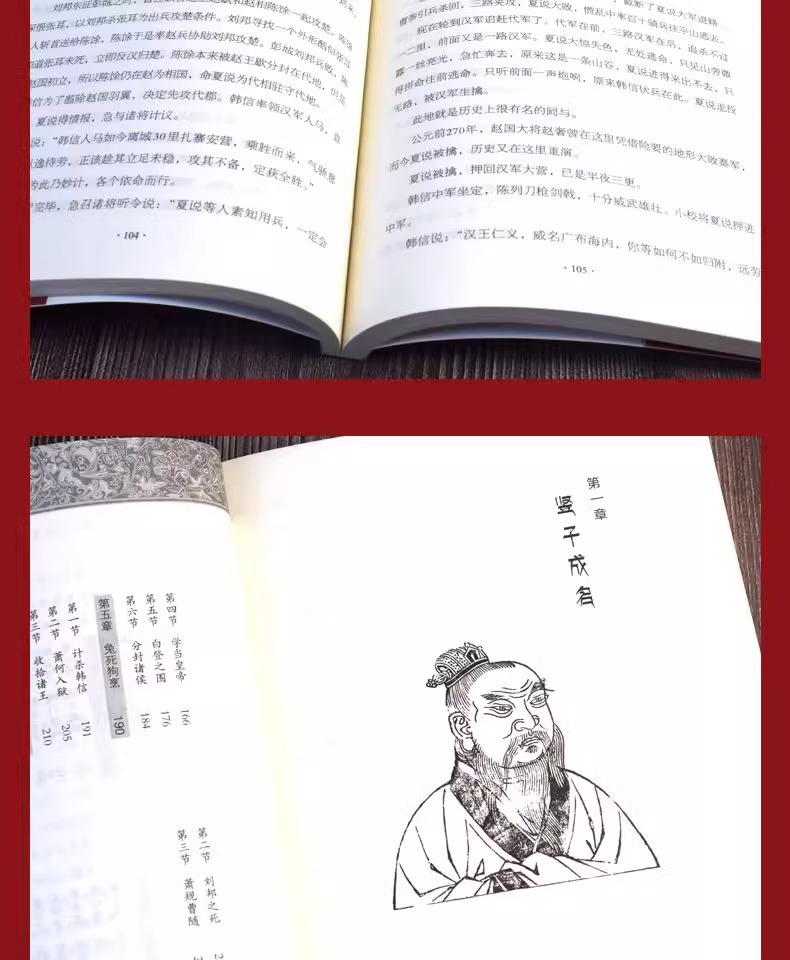 刘邦东征彭城之时，
恨张耳，以刘邦杀张耳为出兵攻楚条件。刘邦寻找一个外形酷似张耳
人斩首送给陈馀，陈馀于是率赵兵协助刘邦攻楚。彭城刘邦兵败，陈
道张耳未死，立即反汉归楚。陈馀本来被赵王歇分封在代地，但是
赵国初立，所以陈馀仍在赵为相国，命夏说为代相驻守代地。
信为了翦除赵国羽翼，决定先攻代郡。韩信率领汉军人马，直
夏说得情报，急与诸将计议。
说：“韩信人马如今离城30里扎寨安营，乘胜而来，气骄意
逸待劳，正该趁其立足未稳，攻其不备，定获全胜。”
为此乃妙计，各个依命而行。
完毕，急召诸将听令说：“夏说等人素知用兵，一定会
·104·
曹参引兵杀回，三路夹攻，夏说大败，慌乱中率百十骑兵往平山逃去。
现在轮到汉军追赶代军了。代军在前，三路汉军在后，追杀不过
一二里，前面又是一路汉军。夏说大惊失色，无处逃命，只见山旁微
露一丝亮光，急忙奔去，原来这是一条山谷，夏说进得来出不去，只
得拼命往前逃命。只听前面一声炮响，原来韩信伏兵在此。夏说走投
无路，被汉军生擒。
此地就是历史上很有名的阏与。
公元前270年，赵国大将赵奢曾在这里凭借险要的地形大败秦军，
而今夏说被擒，历史又在这里重演。
夏说被擒，押回汉军大营，已是半夜三更。
韩信中军坐定，陈列刀枪剑戟，十分威武雄壮。小校将夏说押进
中军。
韩信说：“汉王仁义，威名广布海内，你等如何不如归附，远劳
·105·
第一章
竖子成名
第四节 学当皇帝 166
第五节 白登之围 176
第六节 分封诸侯 184
第五章 兔死狗烹 190
第一节 计杀韩信 191
第二节 萧何入狱 205
第三节 收拾诸王 210
第二节 刘邦之死 2
第三节 萧规曹随 2